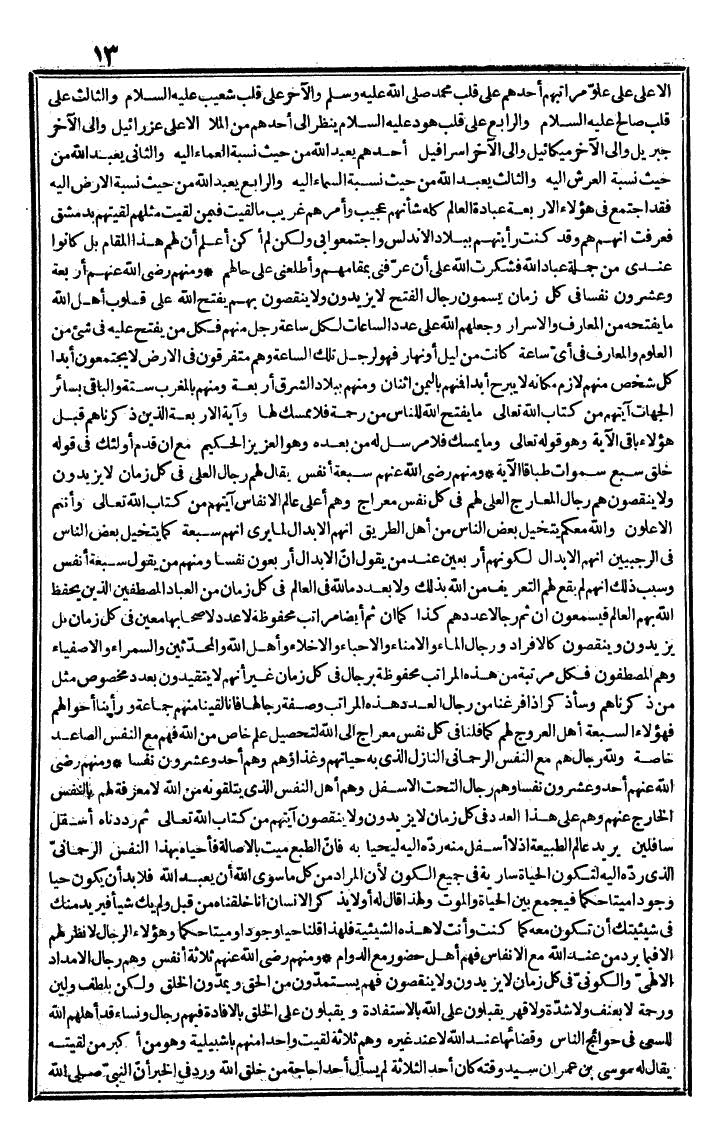 ١٣
الاعلى على علوّ مراتبهم أحدهم على قلب محمد صلى الله عليه وسلم والآخر على قلب شعيب عليه السلام والثالث على
قلب صالح عليه السلام والرابع على قلب هود عليه السلام ينظر الى أحدهم من الملا الاعلى عزرائيل والى الآخر
جبريل والى الآخر ميكائيل والى الآخر اسرافيل أحدهم يعبد الله من حيث نسبة العماء اليه والثانى يعبد الله من
حيث نسبة العرش اليه والثالث يعبد الله من حيث نسبة السماء اليه والرابع يعبد الله من حيث نسبة الارض اليه
فقد اجتمع فى هؤلاء الاربعة عبادة العالم كله شأنهم عجيب وأمرهم غريب ما لقيت فيمن لقيت مثلهم لقيتهم بدمشق
فعرفت انهم هم وقد كنت رأيتهم ببلاد الاندلس واجتمعوا بى ولكن لم أكن أعلم أن لهم هذا المقام بل كانوا
عندى من جملة عباد الله فشكرت الله على أن عرّفنى بمقامهم وأطلعنى على حالهم * ومنهم رضى الله عنهم أربعة
وعشرون نفسا فى كل زمان يسمون رجال الفتح لا يزيدون ولا ينقصون بهم يفتح الله على قلوب أهل الله
ما يفتحه من المعارف والاسرار وجعلهم الله على عدد الساعات لكل ساعة رجل منهم فكل من يفتح عليه فى شئ من
العلوم والمعارف فى أىّ ساعة كانت من ليل أو نهار فهو لرجل تلك الساعة وهم متفرقون فى الارض لا يجتمعون أبدا
كل شخص منهم لازم مكانه لا يبرح أبدا فنهم باليمن اثنان ومنهم ببلاد الشرق أربعة ومنهم بالمغرب ستة والباقى بسائر
الجهات آيتهم من كتاب الله تعالى ما يفتح الله للناس من رحمة فلا ممسك لها وآية الاربعة الذين ذكرناهم قبل
هؤلاء باقى الآية وهو قوله تعالى وما يمسك فلا مرسل له من بعده وهو العزيز الحكيم مع ان قدم أولئك فى قوله
خلق سبع سموات طباقا الآية * ومنهم رضى الله عنهم سبعة أنفس يقال لهم رجال العلى فى كل زمان لا يزيدون
ولا ينقصون هم رجال المعارج العلى لهم فى كل نفس معراج وهم أعلى عالم الانفاس آيتهم من كتاب الله تعالى وأنتم
الاعلون والله معكم يتخيل بعض الناس من أهل الطريق انهم الابدال لما يرى انهم سبعة كما يتخيل بعض الناس
فى الرجبيين انهم الابدال لكونهم أربعين عند من يقول انّ الابدال أربعون نفسا ومنهم من يقول سبعة أنفس
وسبب ذلك انهم لم يقع لهم التعريف من الله بذلك ولا بعدد ما لله فى العالم فى كل زمان من العباد المصطفين الذين يحفظ
الله بهم العالم فيسمعون ان ثم رجالا عددهم كذا كما ان ثم أيضا مراتب محفوظة لا عدد لاصحابها معين فى كل زمان بل
يزيدون وينقصون كالافراد ورجال الماء والامناء والاحباء والاخلاء وأهل الله والمحدّثين والسمراء والاصفياء
وهم المصطفون فكل مرتبة من هذه المراتب محفوظة برجال فى كل زمان غير أنهم لا يتقيدون بعدد مخصوص مثل
من ذكرناهم وسأذكر اذا فرغنا من رجال العدد هذه المراتب وصفة رجالها فانا لقينا منهم جماعة ورأينا أحوالهم
فهؤلاء السبعة أهل العروج لهم كما قلنا فى كل نفس معراج الى الله لتحصيل علم خاص من الله فهم مع النفس الصاعد
خاصة ولله رجال هم مع النفس الرحمانى النازل الذى به حياتهم وغذاؤهم وهم أحد وعشرون نفسا * ومنهم رضى
الله عنهم أحد وعشرون نفسا وهم رجال التحت الاسفل وهم أهل النفس الذى يتلقونه من الله لا معرفة لهم بالنفس
الخارج عنهم وهم على هذا العدد فى كل زمان لا يزيدون ولا ينقصون آيتهم من كتاب الله تعالى ثم رددناه أسفل
سافلين يريد عالم الطبيعة اذ لا أسفل منه ردّه اليه ليحيا به فانّ الطبع ميت بالاصالة فأحياه بهذا النفس الرحمانىّ
الذى ردّه اليه لتكون الحياة سارية فى جميع الكون لأن المراد من كل ما سوى الله أن يعبد الله فلا بد أن يكون حيا
وجودا ميتا حكما فيجمع بين الحياة والموت ولهذا قال له أولا يذكر الانسان انا خلقناه من قبل ولم يك شيأ فيريد منك
فى شيئيتك أن تكون معه كما كنت وأنت لا هذه الشيئية فلهذا قلنا حيا وجودا وميتا حكما وهؤلاء الرجال لا نظر لهم
الا فيما يرد من عند الله مع الانفاس فهم أهل حضور مع الدوام * ومنهم رضى الله عنهم ثلاثة أنفس وهم رجال الامداد
الالهىّ والكونىّ فى كل زمان لا يزيدون ولا ينقصون فهم يستمدّون من الحق ويمدّون الخلق ولكن بلطف ولين
ورحمة لا بعنف ولا شدّة ولا قهر يقبلون على الله بالاستفادة ويقبلون على الخلق بالافادة فيهم رجال ونساء قد أهلهم الله
للسعى فى حوائج الناس وقضائها عند الله لا عند غيره وهم ثلاثة لقيت واحدا منهم باشبيلية وهو من أكبر من لقيته
يقال له موسى بن عمران سيد وقته كان أحد الثلاثة لم يسأل أحدا حاجة من خلق الله ورد فى الخبر أنّ النبىّ صلى الله